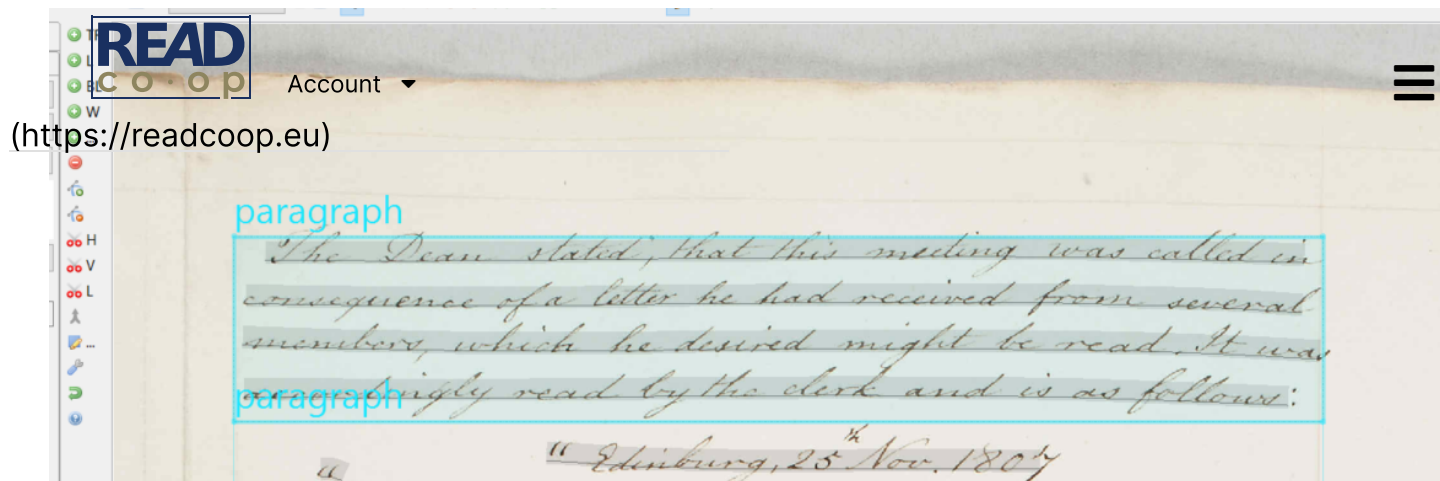 READ
coop
Account
(https://readcoop.eu)
W
H
V
L
...
paragraph
The Dean stated, that this meeting was called in
consequence of a letter he had received from several
members, which he desired might be read. It was
accordingly read by the clerk and is as follows:
paragraph
" Edinburg, 25th Nov. 1807
"